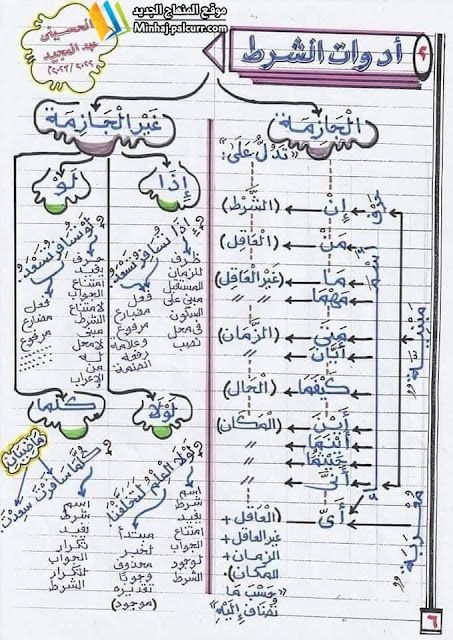 موقع المنهاج الجديد
Minhaj.palcurr.com
الحسيني
عبد المجيد
٢
أدوات الشرط
الْجَازِمَة
«تَدُلُّ عَلَى:
حرف
إِنْ (الشَّرْط)
اسم
مَنْ (الْعَاقِل)
مَا (غير العاقل)
مَهْمَا " "
مَتى (الزَّمان)
أَيَّانَ "
كَيْفَمَا (الْحَال)
أَيْنَ (الْمَكَان)
أَيْنَمَا "
حَيْثُمَا "
أَنَّى "
أَيّ (العاقل +
غير العاقل +
الزمان +
المكان)
«حَسْبَ مَا
تُضَافُ إِلَيْهِ»
مَبْنِيَّة
مُعْرَبَة
غَيْر الْجَازِمَة
إِذَا
إِذَا تُسَافِرُ تَسْعَدُ
ظرف
للزمان
المستقبل
مبنى على
السكون
فى محل
نصب
فعل
مضارع
مرفوع
وعلامة
رفعه
الضمة
لَوْ
لَوْ تُسَافِرُ تَسْعَدُ
حرف
يفيد
امتناع
الجواب
لامتناع
الشرط
مبنى
لا محل
له
من
الإعراب
فعل
مضارع
مرفوع
لَوْلَا
لَوْلَا الْعِلْمُ لَتَخَلَّفْنَا
اسم
شرط
يفيد
امتناع
الجواب
لوجود
الشرط
مبتدأ
لخبر
محذوف
وجوبًا
تقديره
(موجود)
كُلَّمَا
مَاضِيَان
كُلَّمَا سَافَرْتَ سَعِدْتَ
اسم
شرط
يفيد
تكرار
الجواب
لتكرار
الشرط
٦